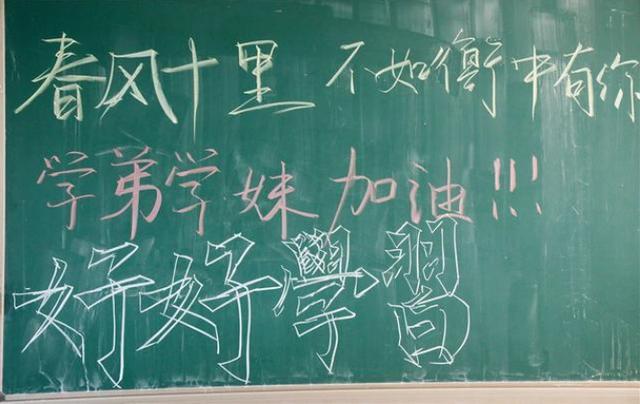 春风十里 不如衡中有你
学弟学妹加油!!!
好好學習